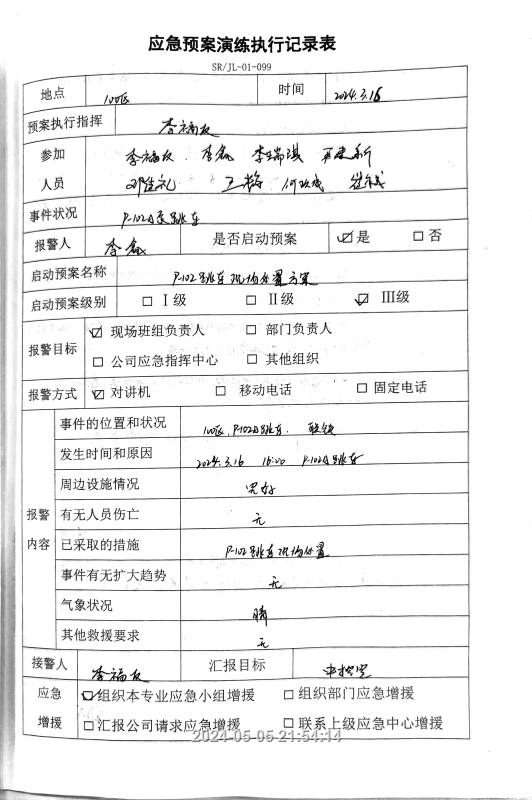 应急预案演练执行记录表
SR/JL-01-099
地点 100区 时间 2024.3.16
预案执行指挥 李福友
参加 李福友 李磊 李瑞琪
人员
事件状况 P-102A泵跳车
报警人 李磊 是否启动预案 ☑是 □否
启动预案名称 P-102跳车现场处置方案
启动预案级别 □Ⅰ级 □Ⅱ级 ☑Ⅲ级
报警目标 ☑现场班组负责人 □部门负责人
□公司应急指挥中心 □其他组织
报警方式 ☑对讲机 □移动电话 □固定电话
报警内容
事件的位置和状况 100区、P-102A跳车、
发生时间和原因 2024.3.16 16:00 P-102A跳车
周边设施情况 完好
有无人员伤亡 无
已采取的措施 P-102跳车现场处置
事件有无扩大趋势 无
气象状况 晴
其他救援要求 无
接警人 李福友 汇报目标 中控室
应急增援 ☑组织本专业应急小组增援 □组织部门应急增援
□汇报公司请求应急增援 □联系上级应急中心增援
2024-05-05 21:54:14